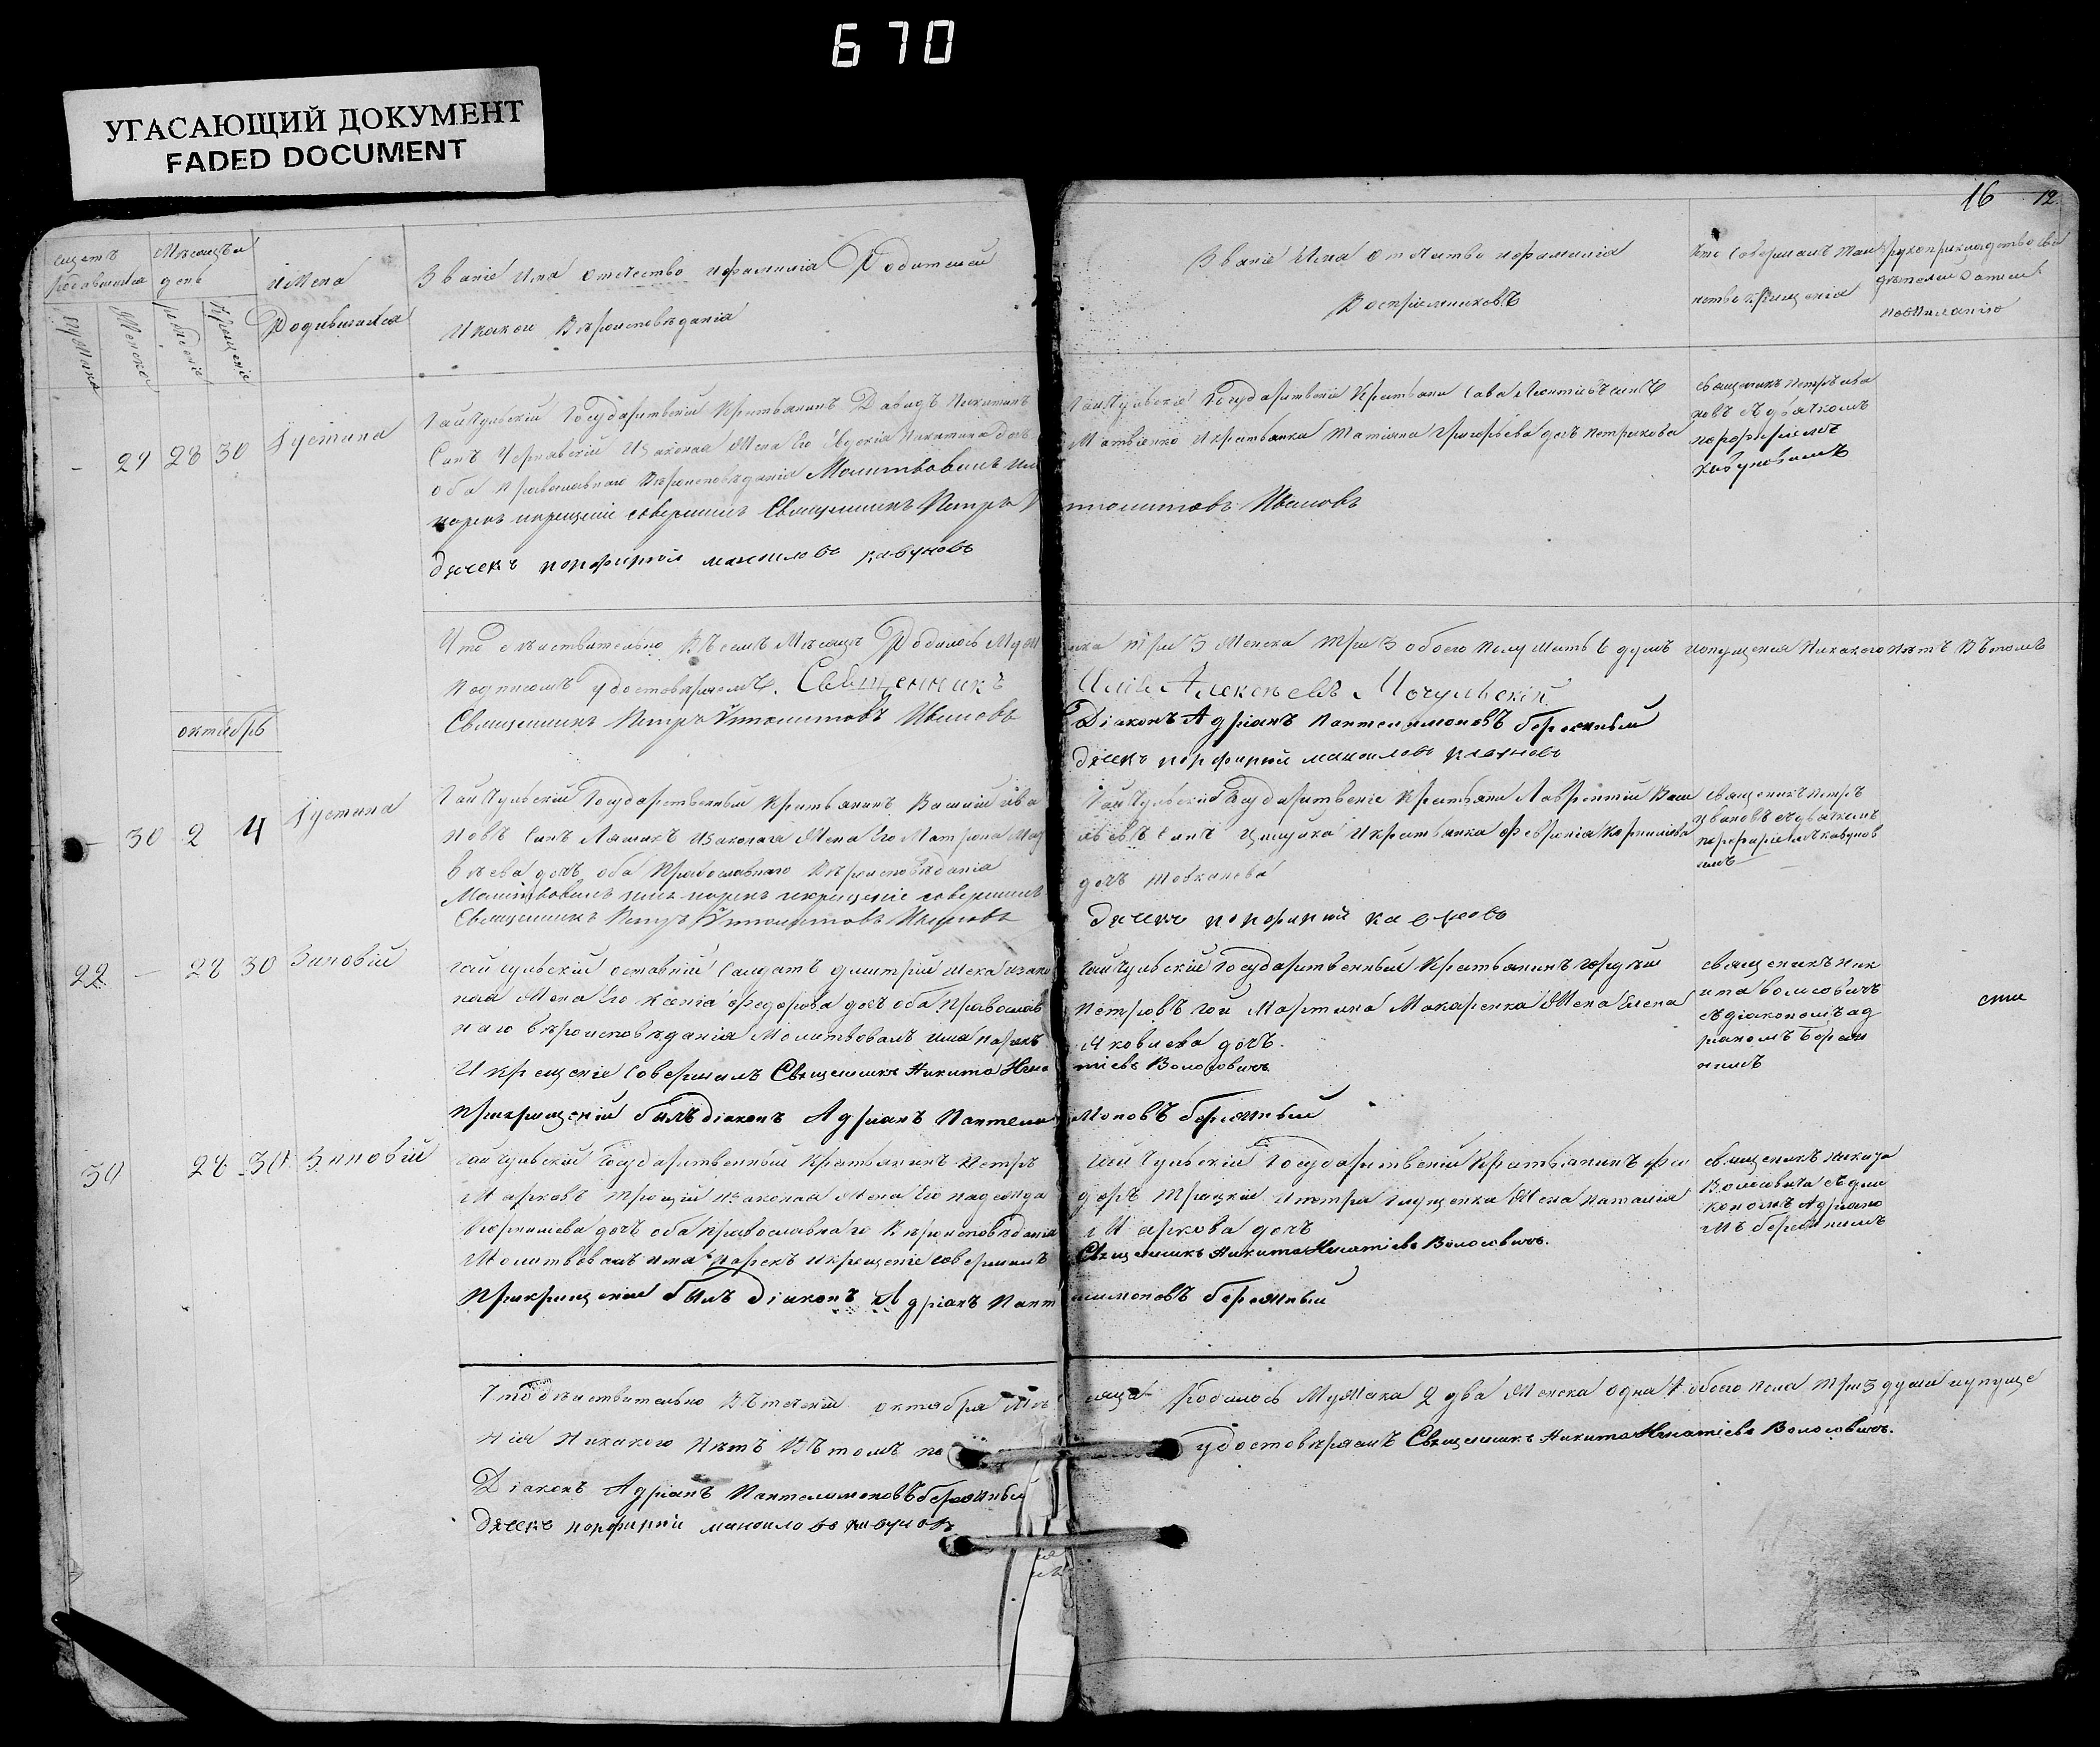 670
УГАСАЮЩИЙ ДОКУМЕНТ
FADED DOCUMENT
16 12
щетъ родившихся
Мѣсяцъ и день
имена Родившихся
Званіе Имя отчество ифамилія Родителей
Икакого Вѣроисповѣданія
Званіе Имя отчитво ифамилія
Воспріемниковъ
Кто Совершалъ Таинство крищенія
рукоприкладство свидѣтелей Записи
пожиланію
мужска
Женска
рожденіе
крищеніе
- 29 28 30 Іустина
Гайчульскій Государитвеній Кристьянинъ Давидъ Никитинъ
Сынъ Чернявскій Изаконая Жена Его Никитина дочь
оба православнаго Вѣроисповѣданія Молитвовалъ имя
нарекъ икрещеніе совершилъ Священникъ Петръ
дячекъ порфирій маноиловъ кавуновъ
Государитвеніи Кристьяни Сава Леонтіевъ синъ
Матвіенко Икристьянка Татіяна Григорьева дочь петрикова
пполитовъ Ивановъ
священикъ петръ ива
новъ съ дьячкомъ
порфиріемъ
кавуновимъ
Что дѣиствительно Въсемъ Мѣсяцѣ Родилось Муж
ска три 3 Женска три 3 обоего полу шить 6 душъ ипущения Никакого нѣтъ Въ томъ
подписомъ удостовѣряемъ. Священникъ
Алексѣевъ Мочульскій
Священникъ Петръ Ипполитовъ Ивановъ
Діаконъ Адріанъ Пантелимоновъ бережный
дячекъ порфирій маноиловъ кавуновъ
октябрь
- 30 2 4 Іустина
Гайчульскій Государственный Кристьянинъ Василій ива
новъ Синъ Ляшикъ Изаконая Жена Его Матрона Мат
вѣева дочь оба Православнаго Вѣроисповѣданія
Молитвовалъ имя нарекъ икрещеніе совершилъ
Священникъ Петръ Ипполитовъ Ивановъ
Гайчульскій Государитвеніе Кристьяни Лаврентій Васи
лѣевъ Синъ Икристьянка Февронія Корнилієва
дочь
дячекъ порфирій кавуновъ
священикъ петръ
ивановъ съ дьячкомъ
порфиріемъ кавунов
имъ
22 - 28 30 Зиновій
гайчульскій оставній Салдатъ дмитрій изако
ная Жена Его ксенія Федорова дочь оба Православ
наго вѣроисповѣданія Молитвовалъ имя нарекъ
И крещеніе Совершалъ Священникъ Никита Игна
тіевъ Волосовичъ
Прикрищеніи былъ діаконъ Адріанъ Пантели
моновъ бережный
гайчульскій Государитвенный Кристьянинъ гордѣй
Петровъ гой Мартина Макаренка Жена Елена
Яковлева дочь.
священикъ ник
ита волосовичъ
съ діакономъ ад
ріаномъ Береж
нимъ
30 28 30 Зиновій
гайчульскій Государственный Кристьянинъ Петръ
Марковъ Троцкій Изаконая Жена Его надежда
Корнилієва дочь оба православнаго Вѣроисповѣданія
Молитвовалъ имя нарекъ икрещеніе совершилъ
Священникъ Никита Игнатіевъ Волосовичъ.
Прикрищеніи былъ Діаконъ Адріанъ Пант
елимоновъ бережный
гайчульскій Государитвеній Кристьянинъ Фи
доръ Троцкій Ипетра Глущенка Жена Наталія
Маркова дочь
священикъ никита
Волосовичъ съ дия
кономъ Адріано
мъ бережнимъ
Что дѣиствительно Вътеченіи октября Мѣ
сяца Родилось Мужска 2 два Женска одна 1 обоего пола три 3 души ипуще
нія Никакого Нѣтъ Въ томъ по
удостовѣряемъ Священникъ Никита Игнатіевъ Волосовичъ.
Діаконъ Адріанъ Пантелимоновъ бережный
дячекъ порфирій маноиловъ кавуновъ